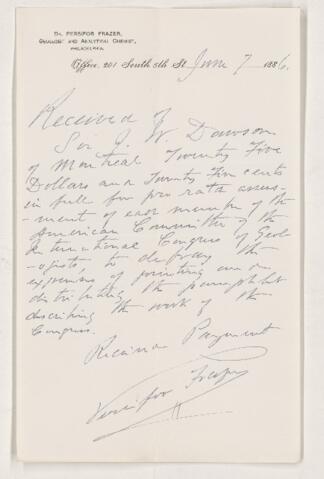 Dr. PERSIFOR FRAZER,
GEOLOGIST AND ANALYTICAL CHEMIST,
PHILADELPHIA.
Office, 201 South 5th St. June 7 1886.
Received of
Sir J. W. Dawson
of Montreal Twenty Five
Dollars and Twenty Five cents
in full for pro rata assess-
-ment of each member of the
American Committee of the
International Congress of Geol
-ogists, to defray the
expenses of printing and
distributing the pamphlet
describing the work of the
Congress.
Payment
Persifor Frazer